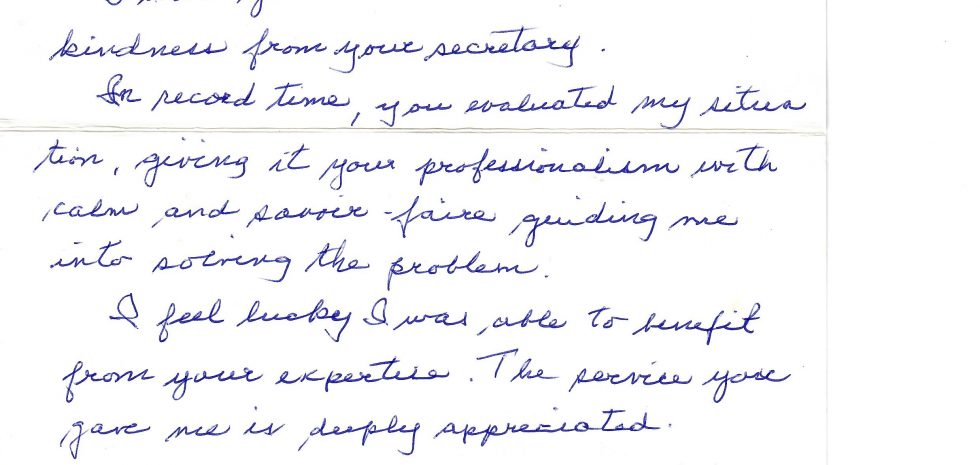 kindness from your secretary.
In record time, you evaluated my situa
tion, giving it your professionalism with
calm and savoir-faire guiding me
into solving the problem.
I feel lucky I was able to benefit
from your expertise. The service you
gave me is deeply appreciated.